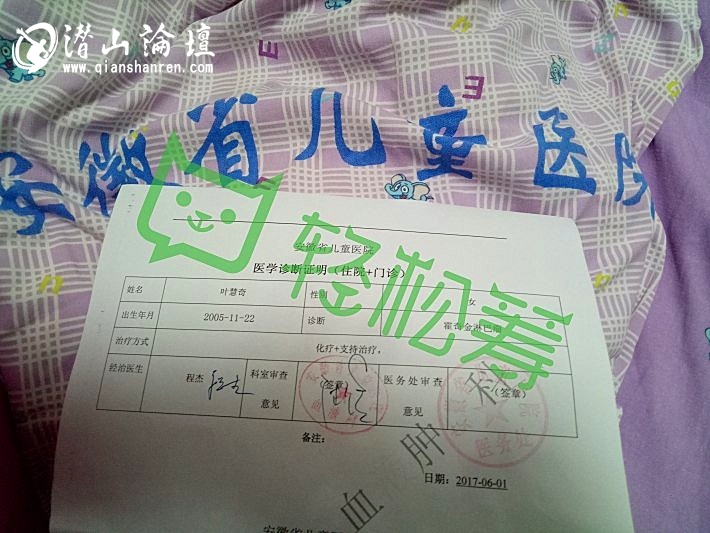 潜山論壇
www.qianshanren.com
安徽省儿童医院
轻松筹
安徽省儿童医院
医学诊断证明（住院+门诊）
姓名 叶慧奇 性别 女
出生年月 2005-11-22 诊断 霍奇金淋巴瘤
治疗方式 化疗+支持治疗。
经治医生 程杰 科室审查意见 (签章) 医务处审查意见 (签章)
医务处
备注：
血肿科
日期：2017-06-01
安徽省儿童